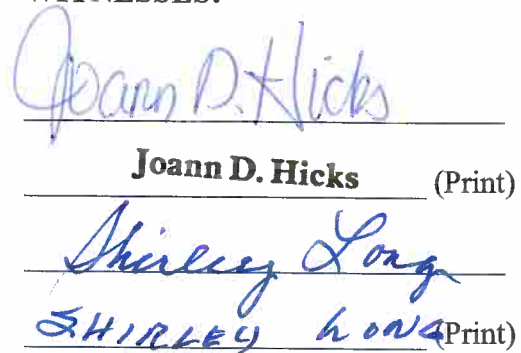 WITNESSES:
Joann D. Hicks
Joann D. Hicks (Print)
Shirley Long
SHIRLEY LONG (Print)